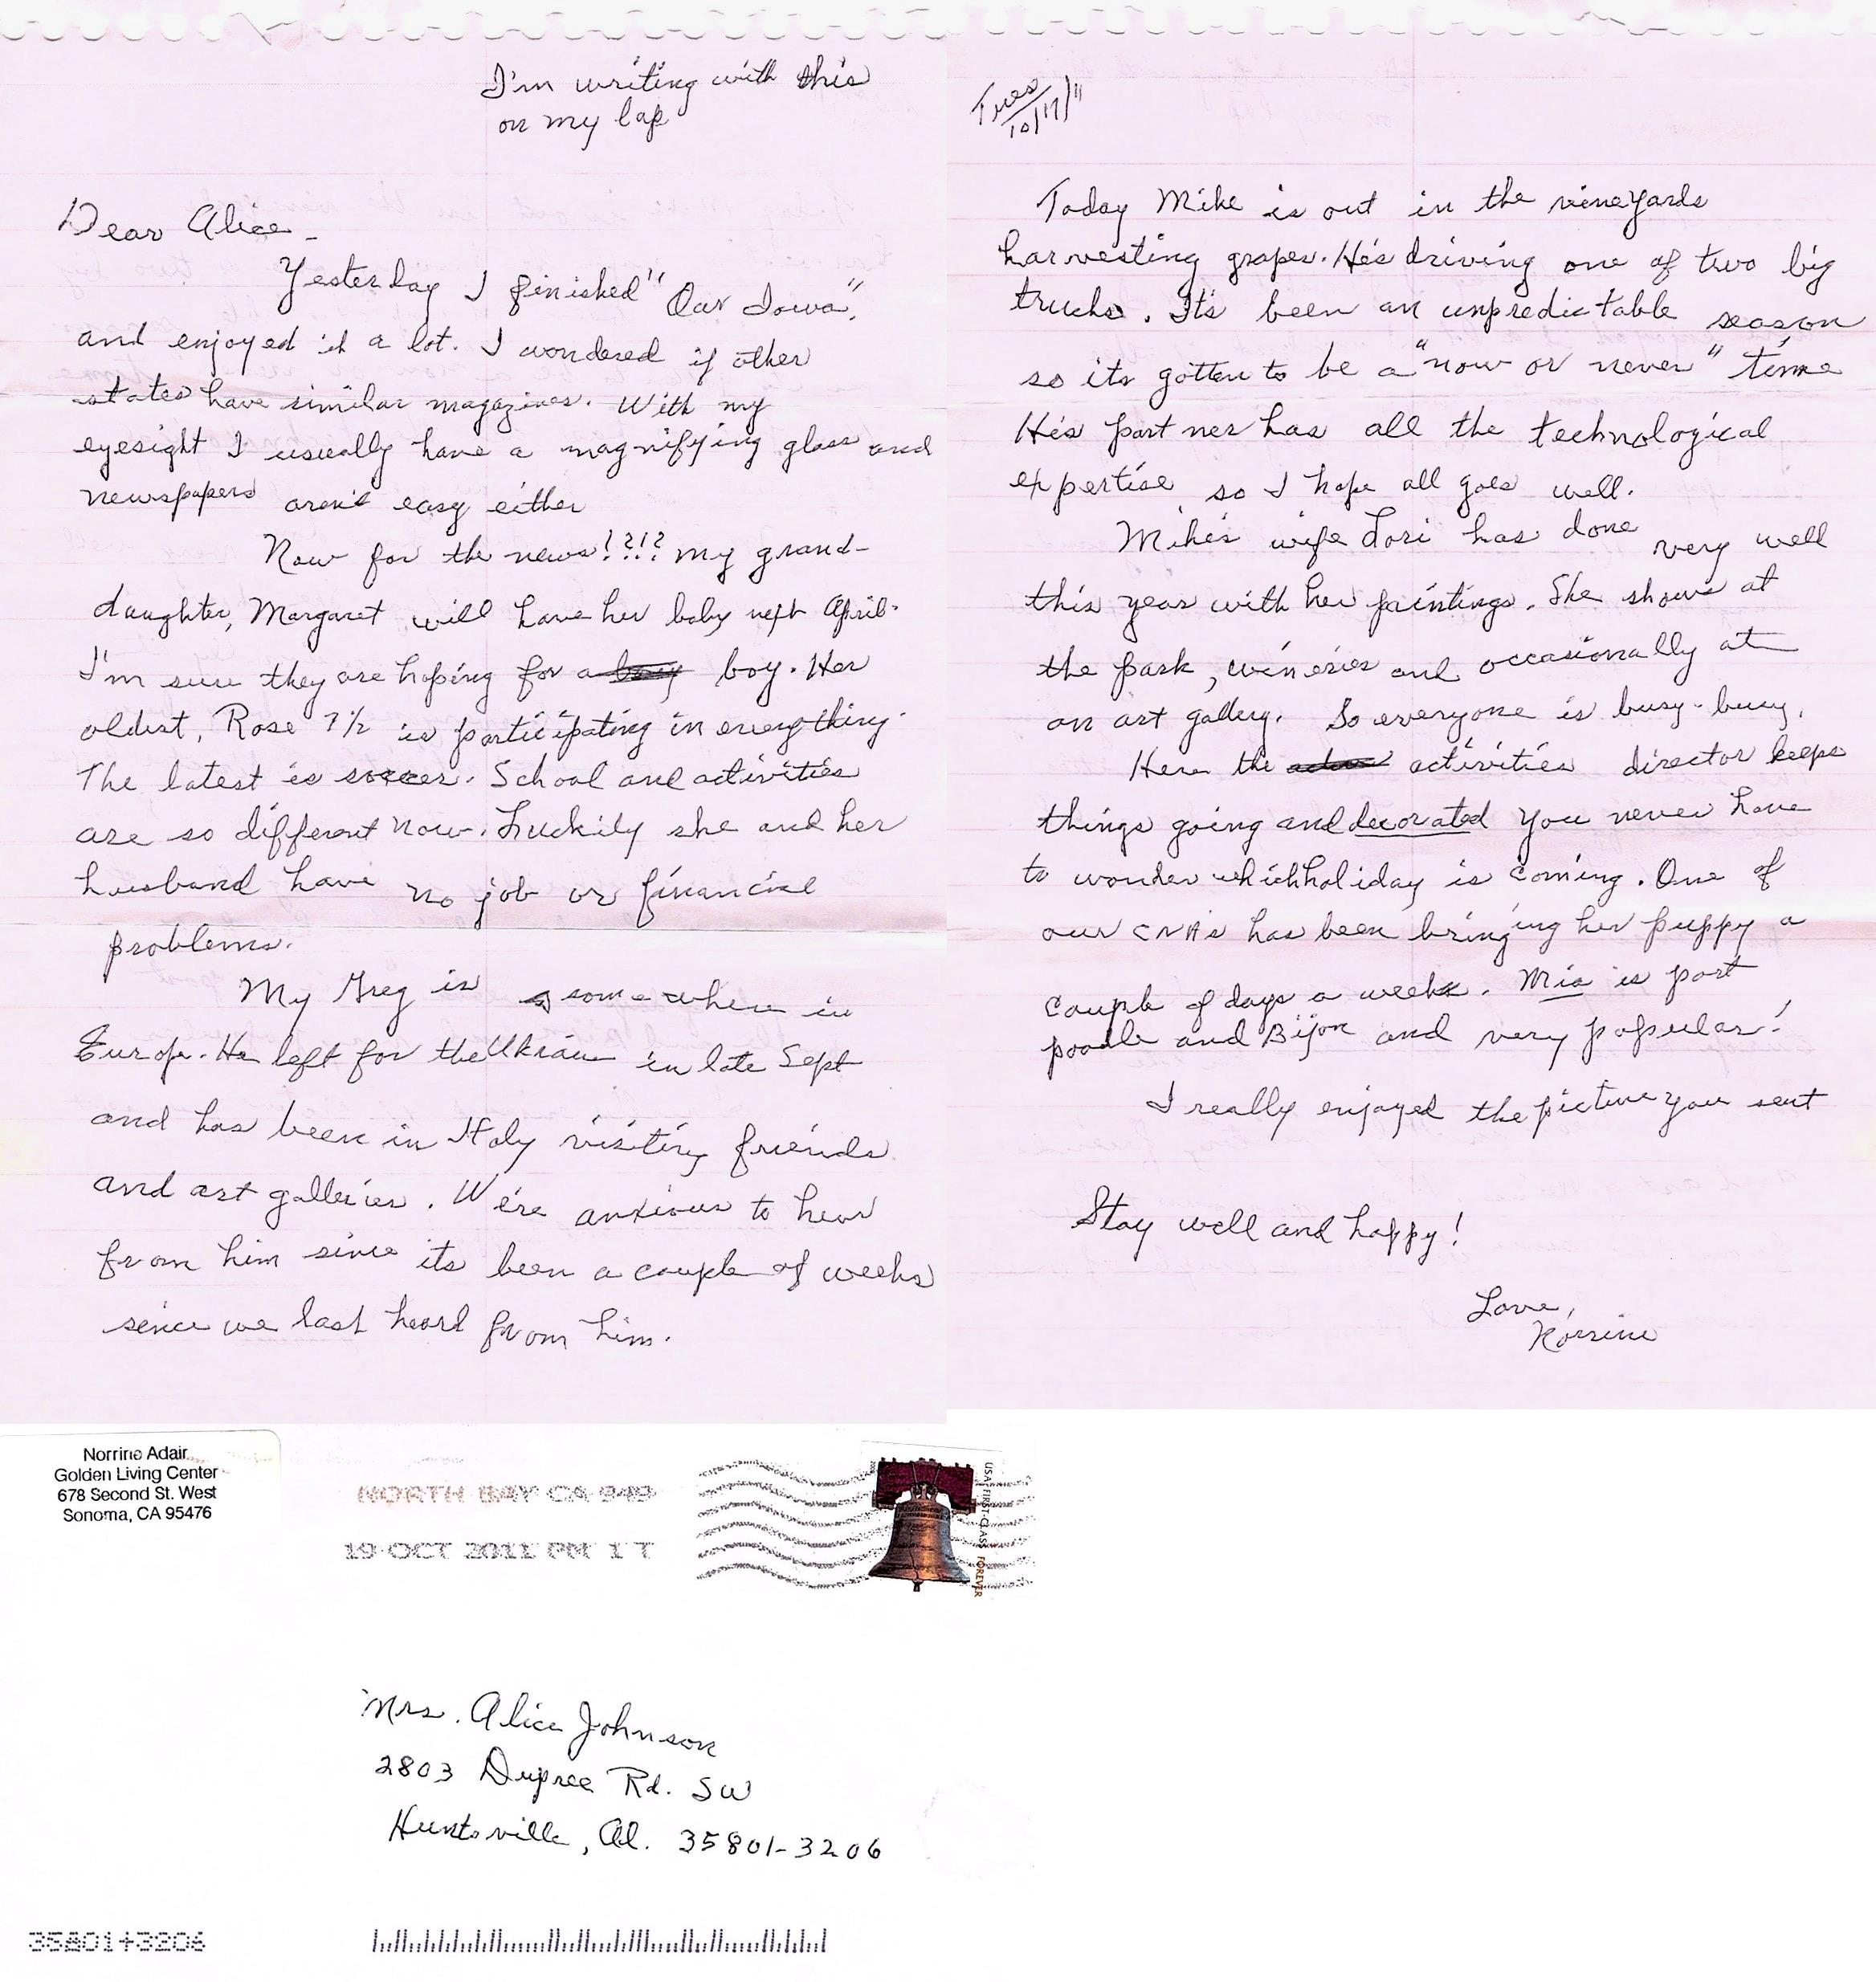 I'm writing with this
on my lap
Dear Alice -
Yesterday I finished "Our Iowa".
and enjoyed it a lot. I wondered if other
states have similar magazines. With my
eyesight I usually have a magnifying glass and
newspapers aren't easy either
Now for the news!?!? My grand-
daughter, Margaret will have her baby next April.
I'm sure they are hoping for a boy. Her
oldest, Rose 7 1/2 is participating in everything.
The latest is soccer. School and activities
are so different now. Luckily she and her
husband have no job or financial
problems.
My Greg is somewhere in
Europe. He left for the Ukraine in late Sept
and has been in Italy visiting friends
and art galleries. We're anxious to hear
from him since its been a couple of weeks
since we last heard from him.
Tues
10/17/11
Today Mike is out in the vineyards
harvesting grapes. He's driving one of two big
trucks. It's been an unpredictable season
so its gotten to be a "now or never" time
His partner has all the technological
expertise so I hope all goes well.
Mike's wife Lori has done very well
this year with her paintings. She shows at
the park, wineries and occasionally at
an art gallery. So everyone is busy-busy.
Here the activities director keeps
things going and decorated You never have
to wonder which holiday is coming. One of
our CNAs has been bringing her puppy a
couple of days a week. Mia is part
poodle and Bijon and very popular!
I really enjoyed the picture you sent
Stay well and happy!
Love,
Norrine
Norrine Adair
Golden Living Center
678 Second St. West
Sonoma, CA 95476
NORTH BAY CA 949
19 OCT 2011 PM 1 T
USA FIRST-CLASS FOREVER
Mrs. Alice Johnson
2803 Dupree Rd. SW
Huntsville, Al. 35801-3206
35801+3206